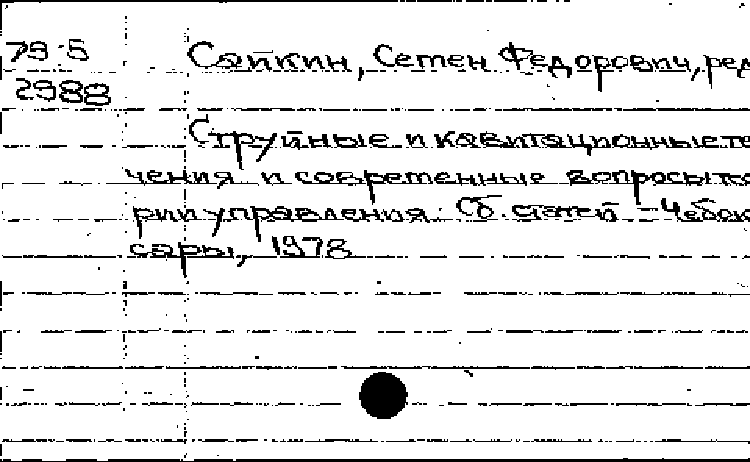 79:5 Сайкин, Семен Федорович, ред
2988
Струйные и кавитационные те
чения и современные вопросы тео
рии управления: Сб. статей – Чебок
сары, 1978